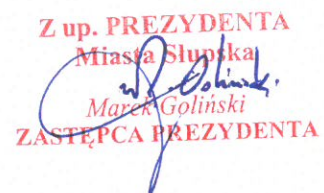 Z up. PREZYDENTA
Miasta Słupska
Marek Goliński
ZASTĘPCA PREZYDENTA